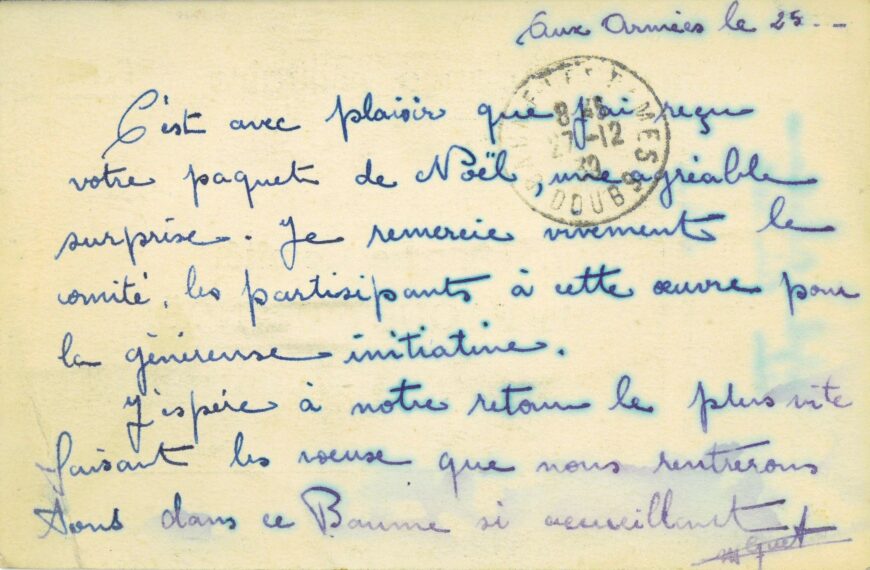 Aux Armées le 25 --
C'est avec plaisir que j'ai reçu
votre paquet de Noël, une agréable
surprise. Je remercie vivement le
comité, les partisipants à cette œuvre pour
la généreuse initiative.
J'espère à notre retour le plus vite
faisant les voeuse que nous rentrerons
tous dans ce Baume si accueillant
BAUME LES DAMES
27-12
39
DOUBS